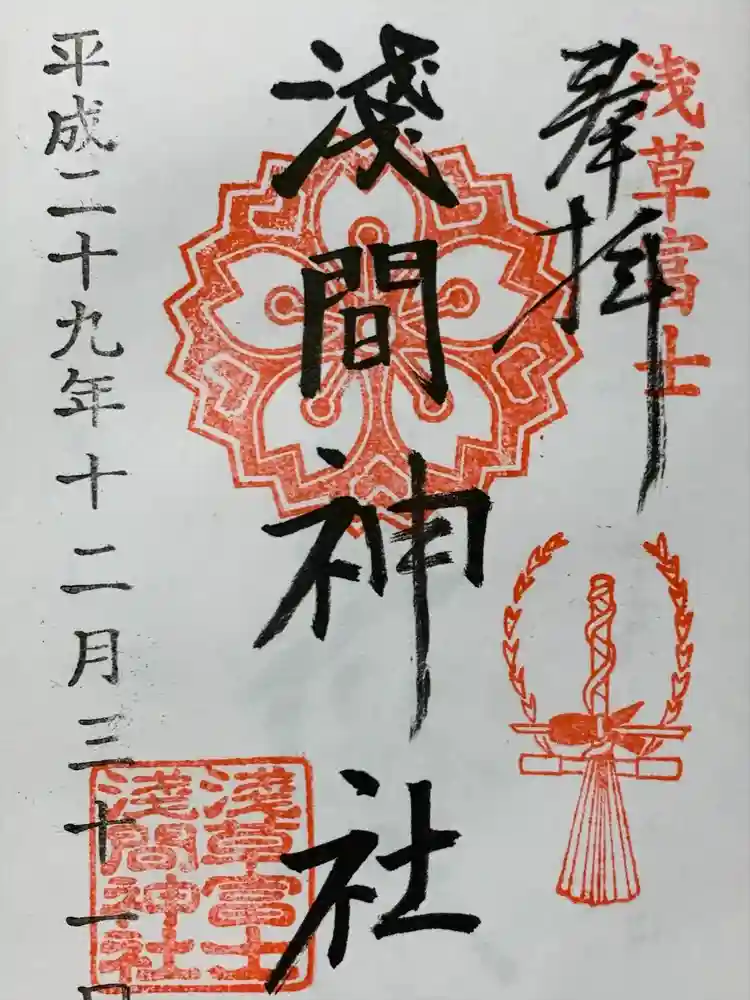 浅草富士
奉拝
淺間神社
淺草富士
淺間神社
平成二十九年十二月三十一日